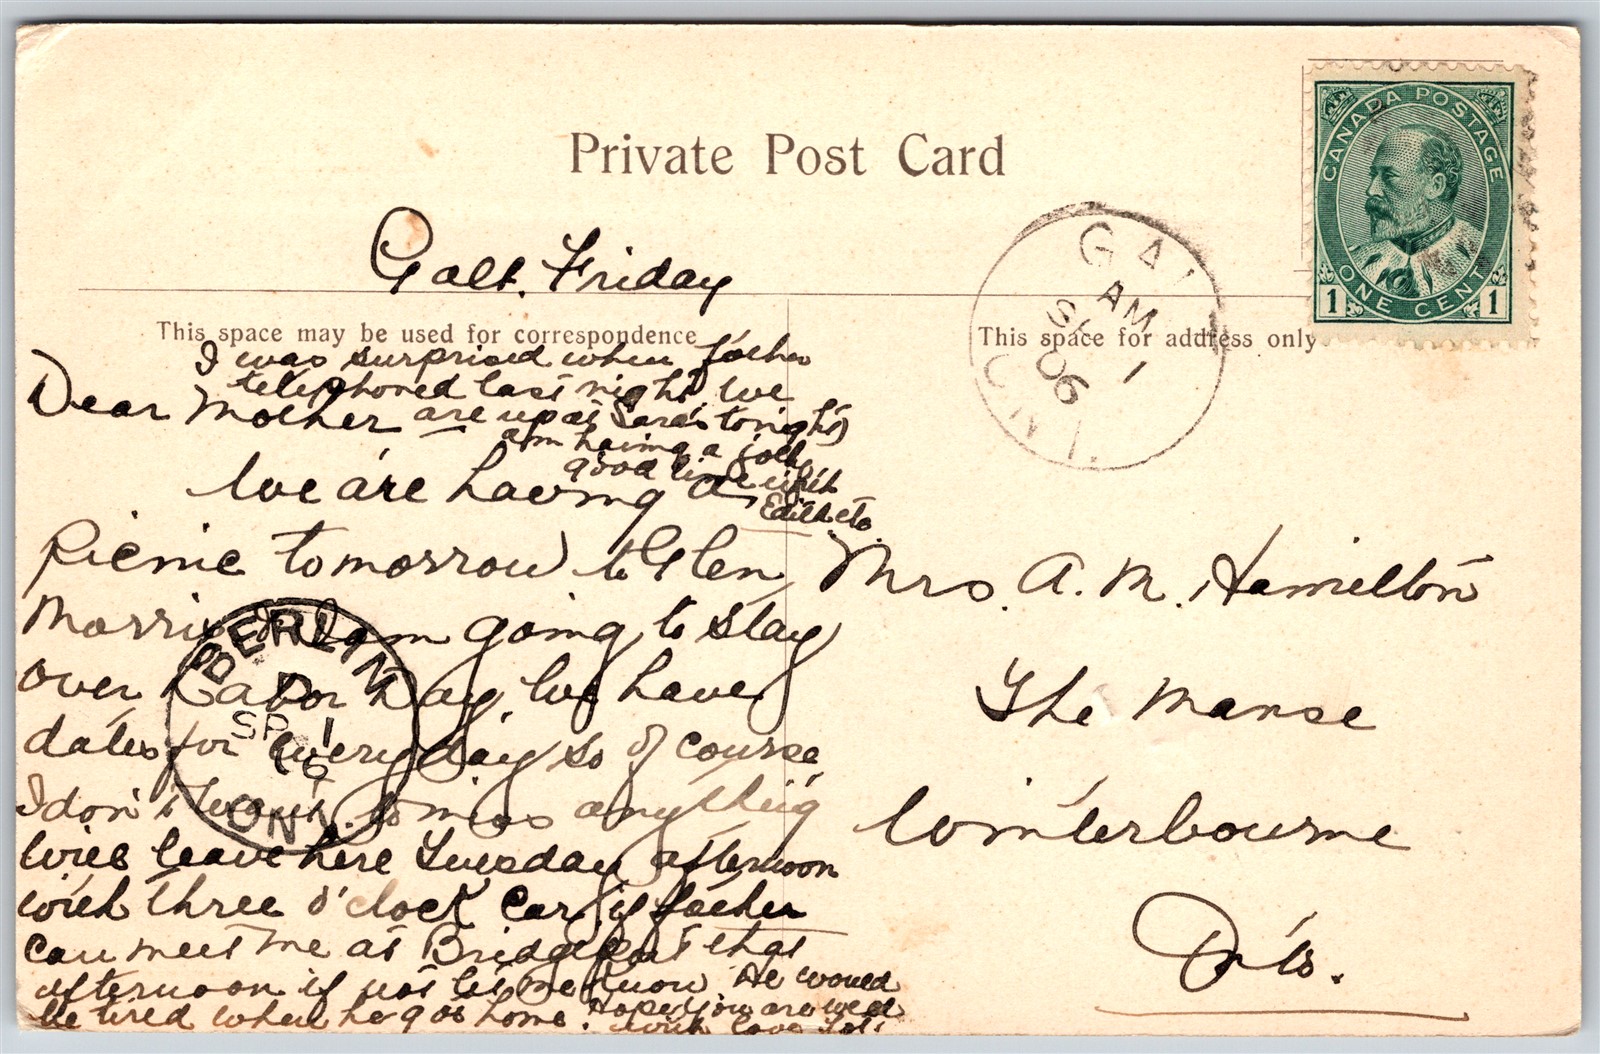 Private Post Card
CANADA POSTAGE
ONE CENT
1 1
Galt. Friday
GAL
AM
SP 1
06
ONT.
This space may be used for correspondence
This space for address only
I was surprised when father
telephoned last night. We
are up at Sara's tonight)
am having a jolly
good time with
Edith etc.
Dear Mother
We are having a
Picnic tomorrow to Glen
Morris. I am going to stay
over Labor Day. We have
dates for every day so of course
I don't want to miss anything
Will leave here Tuesday afternoon
with three o'clock car if father
can meet me at Bridgeport that
afternoon if not let me know. He would
be tired when he got home. Hope you are well
with love
BERLIN
SP 1
06
ONT.
Mrs. A. M. Hamilton
The Manse
Winterbourne
Ont.